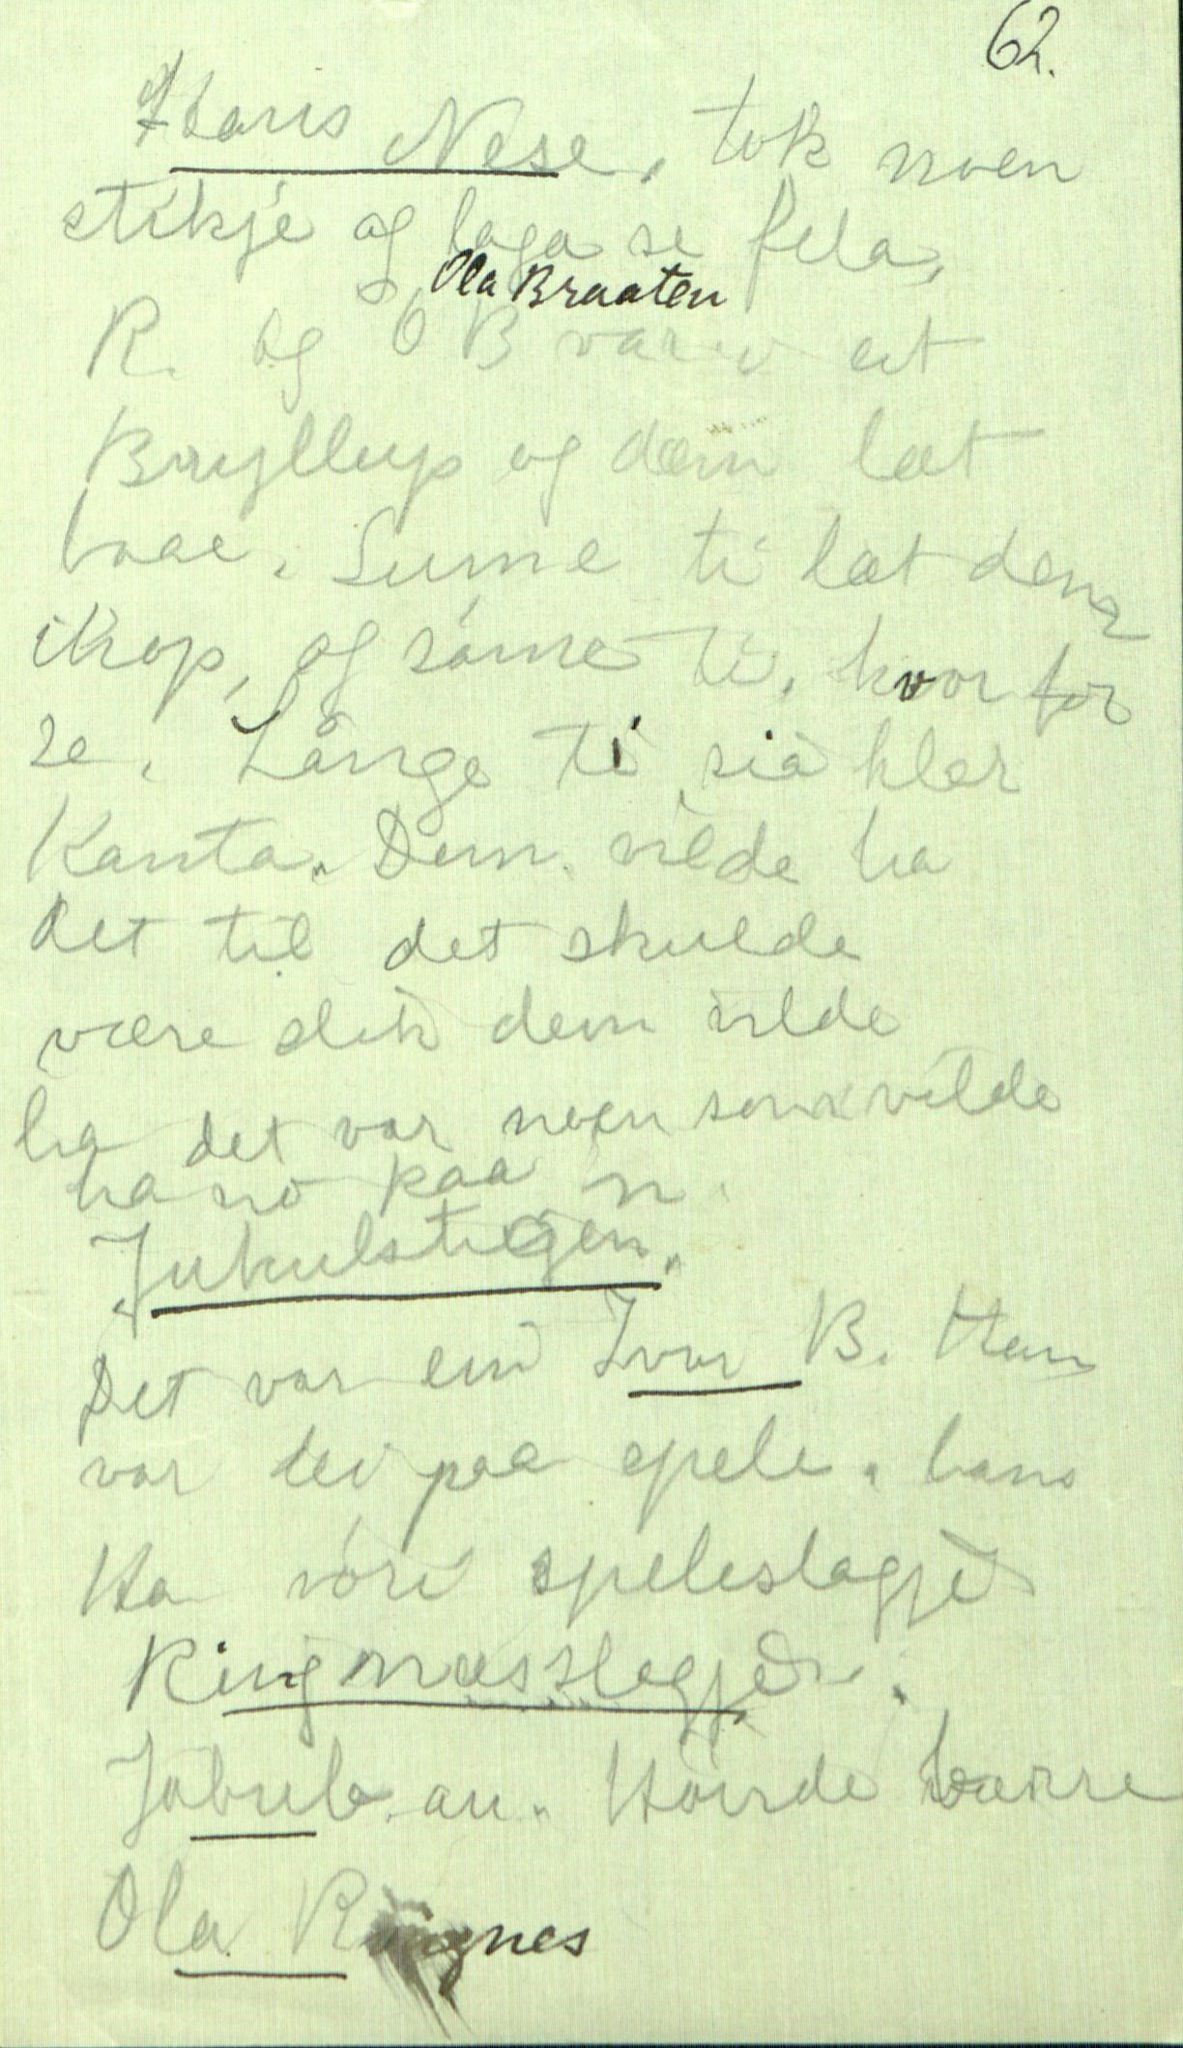 62.
Hans Nese, tok noen
stikje og laga se fela,
Ola Braaten
R. og O B var i eit
Bryllup og dæm læt
baae. Sume ti læt dem
ihop, og sume ti, hvor for
se. Långe ti sia kler
Kanta. Dem vilde ha
det til det skulde
være slik dem vilde
ha det var noen som vilde
ha no paa n.
Jukulstigen.
Det var ein Ivar B. Han
var lei paa spele. han
Ha vöri speleslagje
Ringnesslagje.
Jøbuls au. Hörde berre
Ola Rignes